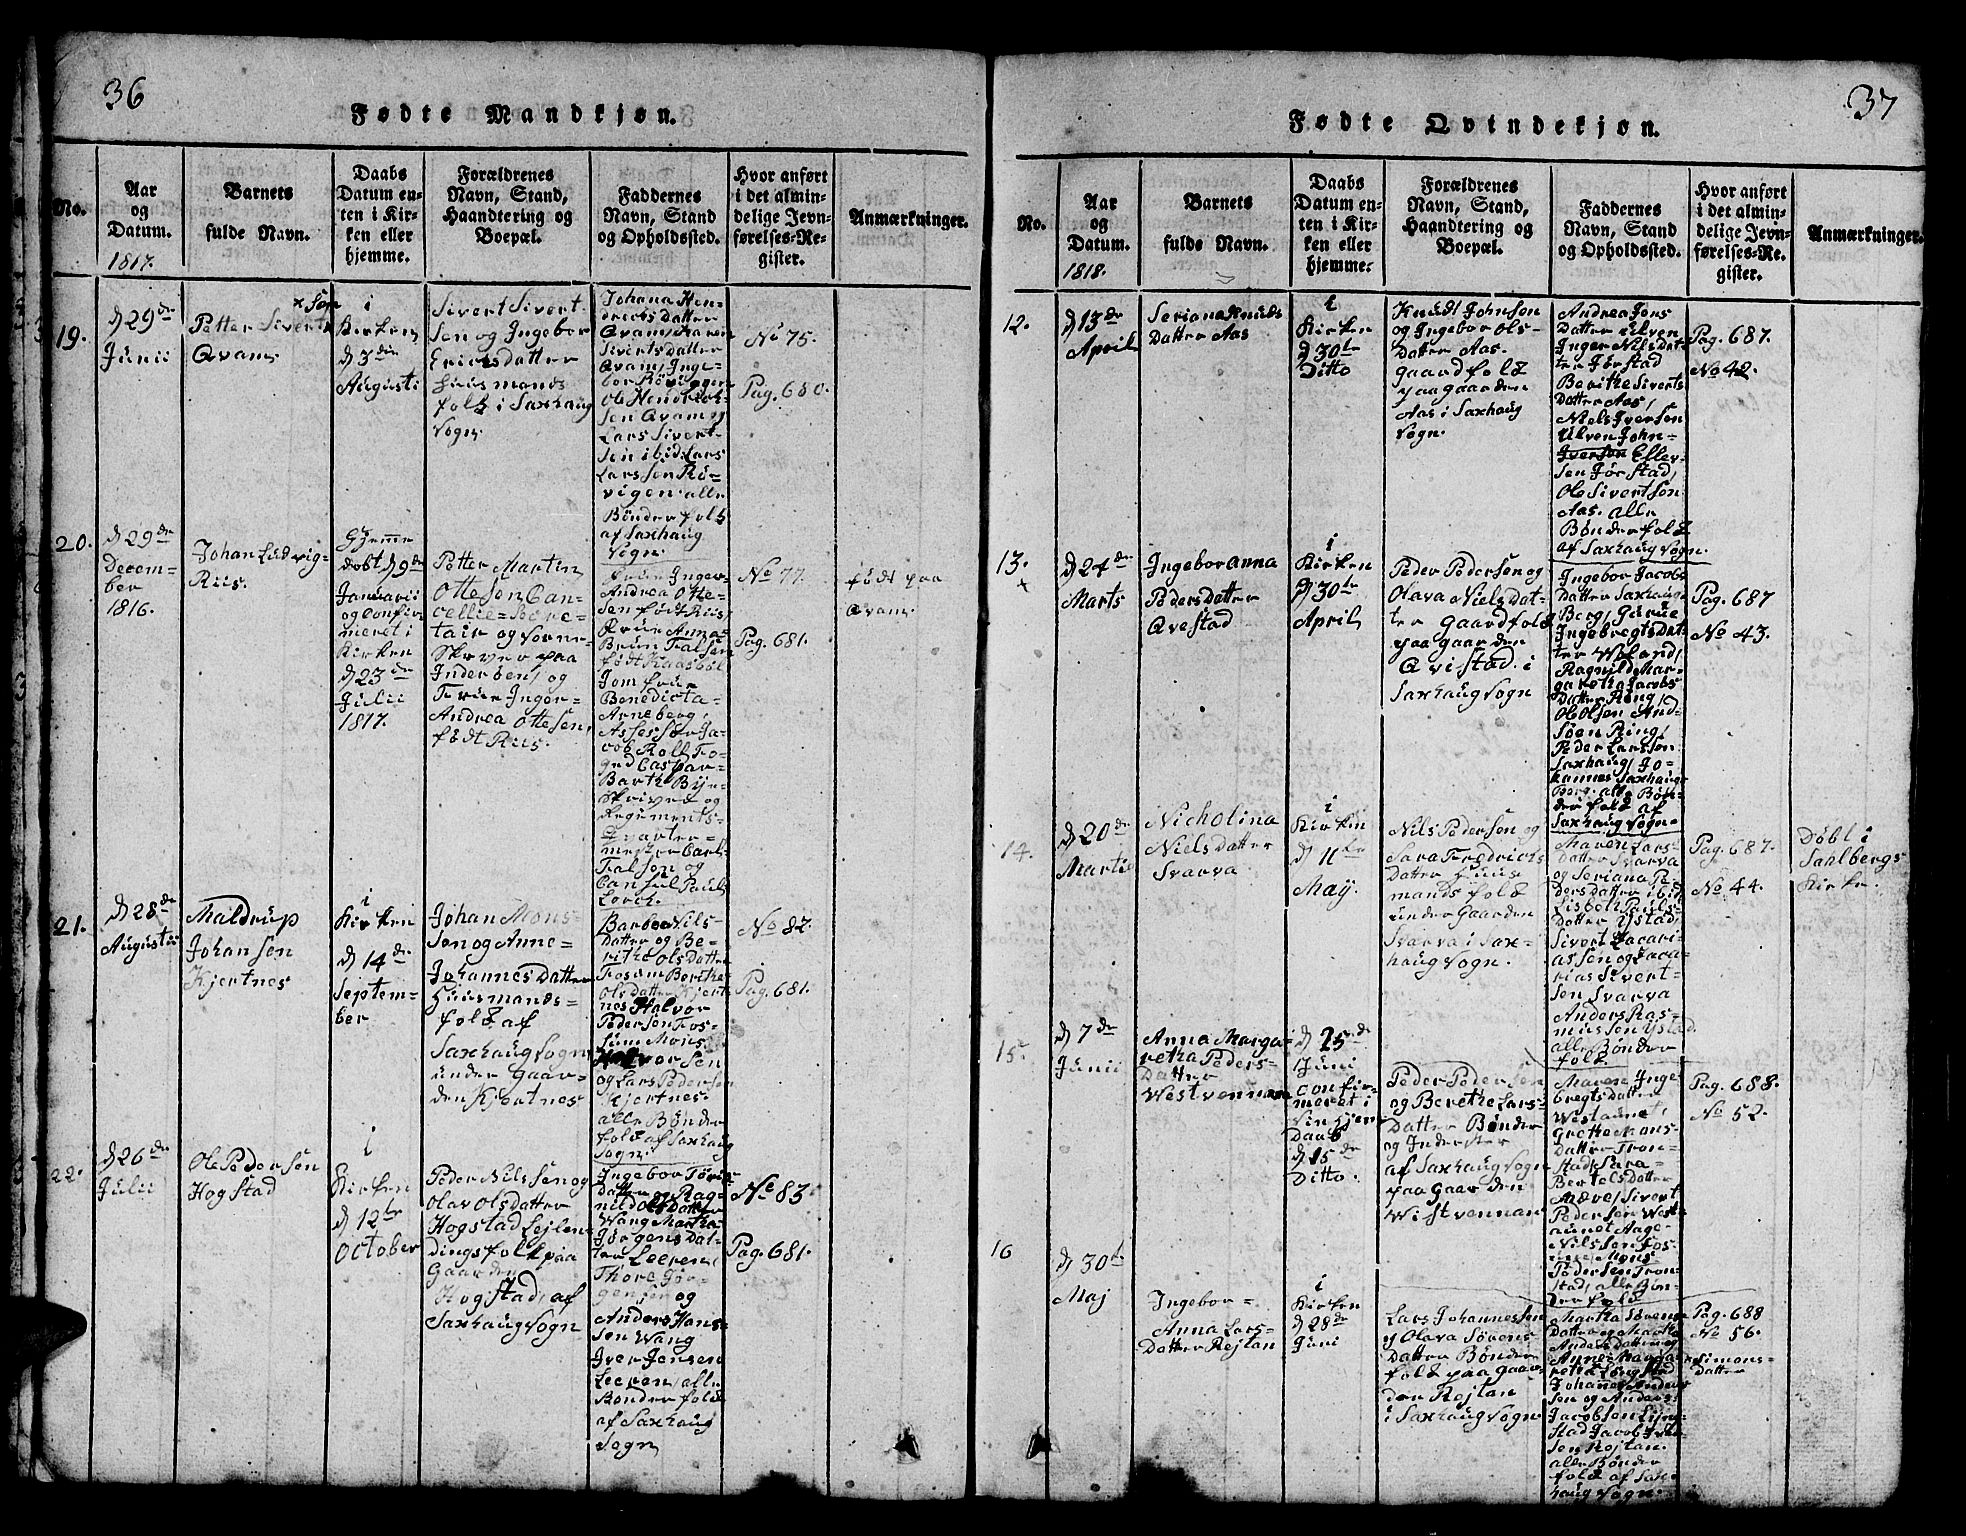 36
Fødte Mandkjøn.
No.
Aar
og
Datum.
1817.
Barnets
fulde Navn.
Daabs
Datum en-
ten i Kir-
ken eller
hjemme.
Forældrenes
Navn, Stand,
Haandtering og
Boepæl.
Faddernes
Navn, Stand
og Opholdssted.
Hvor anført
i det almin-
delige Jevn-
førelses-Re-
gister.
Anmærkninger.
19.
d 29de
Junii
Petter Siverts
× Søn
Qvam
i
Kirken
d 3die
Augusti
Sivert Sivert-
sen og Ingebor
Ericksdatter
Huusmands
folk i Saxhaug
Sogn.
Johana Hen-
dricksdatter
Qvam, Karen
Sivertsdatter
Qvam, Inge-
bor Røvigen
Ole Hendrick-
sen Qvam og
Lars Sivert-
sen ibid. Lars
Larssen Rø-
vigen. alle
Bønderfolk
af Saxhaug
Sogn.
No 75.
Pag. 680.
20.
d 29de
Decem-
ber
1816.
Johan Ludvig
Riis.
Hjeme
døbt d 9de
Januarii
og confir-
meret i
Kirken
d 23de
Julii
1817.
Petter Martin
Ottesen Can-
cellie-Secre-
tair og Soren-
skriver paa
Inderøen, og
Frue Inger-
Andrea Ottesen,
født Riis.
Frue Inger
Andrea Otte-
sen født Riis
Frue Anna
Bruun Falsen
født Kaasbøl
Jomfrue
Benedicta
Arneberg,
Assessor Ja-
cob Roll Fo-
ged Caspar
Barth Bye-
skriver og
Regiments-
Qvarter-
mester Carl
Falsen og
Consul Paul
Lorck.
No 77.
Pag. 681.
født paa
Qvam.
21.
d 28de
Augusti
Maldrup
Johansen
Kjertnes
i
Kirken
d 14de
Septem-
ber
Johan Mons-
sen og Anne
Johannesdatter
Huusmands-
folk af
Saxhaug Sogn
under Gaar-
den Kjertnes
Barbo Nils-
datter og Be-
rithe Olsdatter
Fosum Berithe
Olsdatter Kjert-
nes Halvor
Pedersen Fos-
sum Mons
Halvorsen
og Lars Pedersen
Kjertnes
alle Bønder
folk af Saxhaug
Sogn.
No 82.
Pag. 681.
22.
d 26de
Julii
Ole Pedersen
Hogstad
i
Kirken
d 12te
October
Peder Nilssen og
Olav Olsdatter
Hogstad Lejlen-
dingsfolk paa
Gaarden
Hogstad, af
Saxhaug Sogn
Ingebor
datter og Rag-
nild Olsdatter
Wang Martha
Jørgensdat-
ter Leeren,
Thore Jør-
gensen og
Anders Hans-
sen Wang
Iver Jensen
Leeren, alle
Bønderfolk
af Saxhaug
Sogn
No 83
Pag. 681.
37
Fødte Qvindekjøn.
No.
Aar
og
Datum.
1818.
Barnets
fulde Navn.
Daabs
Datum en-
ten i Kir-
ken eller
hjemme.
Forældrenes
Navn, Stand,
Haandtering og
Boepæl.
Faddernes
Navn, Stand
og Opholdssted.
Hvor anført
i det almin-
delige Jevn-
førelses-Re-
gister.
Anmærkninger.
12.
d 13de
April
Seriana Knuds
Datter Aas
i
Kirken
d 30te
Ditto
Knudt Johnsen
og Ingebor Ols-
Datter Aas.
Gaardfolk
paa gaarden
Aas i Saxhaug
Sogn.
Andrea Jons
Datter Ulven
Inger Nilsdat-
ter Jørstad
Berithe Siverts
Datter Aas,
Niels Iversen
Ulven John-
Iversen Ellev-
sen Jørstad,
Ole Sivertsen
Aas. alle
Bønderfolk
af Saxhaug Sogn.
Pag. 687.
No 42.
13.
×
d 24de
Marts
Ingeboranna
Pedersdatter
Qvestad
i
Kirken
d 30te
April
Peder Pedersen og
Olava Nielsdat-
ter Gaardfolk
paa gaarden
Qvistad. i
Saxhaug Sogn
Ingebor Jacobs
Datter Saxhaug-
Berg, Gurue
Ingebregtsdat-
ter Woland,
Ragnild Mar-
garetha Jacobs
Datter Ring,
Ole Olsen And-
søen Ring,
Peder Larssen
Saxhaug, Jo-
hannes Saxhaug-
Berg. alle Bøn-
derfolk af
Saxhaug Sogn.
Pag. 687
No 43.
14.
d 20de
Martii
Nicholina
Nielsdatter
Svarva
i
Kirken
d 11te
May.
Nils Pedersen og
Sara Fredrichs
Datter Huus
mandsfolk
under Gaarden
Svarva i Sax-
haug Sogn.
Maren Lars-
datter Svarva
og Seriana Pe-
dersdatter ibid.
Lisbeth Puls
Datter Ystad,
Sivert Zacari-
assen og Zaca-
rias Sivert-
sen Svarva
Anders Ras-
mussen Ystad
alle Bønder
folk
Pag. 687.
No 44.
Døbt i
Sahlbergs
Kirke.
15.
d 7de
Junii
Anna Marga-
retha Peders-
Datter
Westvennan
d 25de
Juni
confir-
meret i
sin hjem
Daab
d 15de
Ditto
Peder Pedersen
og Berethe Lars-
Datter Bønder
og Inderster
af Saxhaug Sogn
paa Gaarden
Wistvennan
Maren Inge
bregtsdatter
Westaunet,
Grethe Mons-
datter Tron-
stad, Sara
Bertelsdatter
Mære, Sivert
Pedersen West-
aunet Aage
Nilssen Fos-
Mons
Pedersen Tron-
stad, alle Bøn-
derfolk
Pag. 688.
No 52.
16
d 30te
Maj
Ingebor-
Anna Lars-
Datter Rejtan
i
Kirken
d 28de
Juni
Lars Johannessen
og Olava Sørens
Datter Bønder
folk paa Gaar-
den Rejtan
i Saxhaug Sogn
Martha Sørens
Datter og Martha
Andersdatter og
Anne Marga-
retha
Johannes Anders
sen og Anders
Jacobsen Ling-
stad Jacob
sen Rejtan.
alle Bønder
folk af Sax-
haug Sogn.
Pag. 688
No 56.
× Simons-
Datter